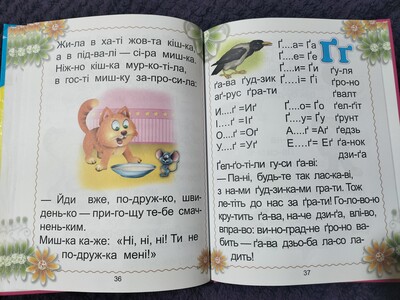 Жи-ла в ха-ті жов-та кіш-ка,
а в під-ва-лі — сі-ра миш-ка.
Ніж-но кіш-ка мур-ко-ті-ла,
в гос-ті миш-ку за-про-си-ла:
— Йди вже, по-друж-ко, шви-
день-ко — при-го-щу те-бе смач-
нень-ким.
Миш-ка ка-же: «Ні, ні, ні! Ти не
по-друж-ка мені!»
36
Ґг
Ґ....а= Ґа
Ґ....е= Ґе
Ґ....и= Ґи
Ґ....і= Ґі
ґа-ва ґуд-зик
аґ-рус ґра-ти
ґу-ля
ґро-но
ґвалт
И....ґ =Иґ
І....ґ =Іґ
О....ґ =Оґ
У....ґ =Уґ
Ґ....о= Ґо
Ґ....у= Ґу
А....ґ= Аґ
Е....ґ= Еґ
ґел-ґіт
ґрунт
ґедзь
ґа-нок
дзи-ґа
Ґел-ґо-ті-ли гу-си ґа-ві:
— Па-ні, будь-те так лас-ка-ві,
з на-ми ґуд-зи-ка-ми гра-ти. Тож
ле-тіть до нас за ґра-ти! Го-ло-во-ю
кру-тить ґа-ва, на-че дзи-ґа, влі-во,
впра-во: ви-но-град-не ґро-но ва-
бить — ґа-ва дзьо-ба ла-со ла-
дить!
37